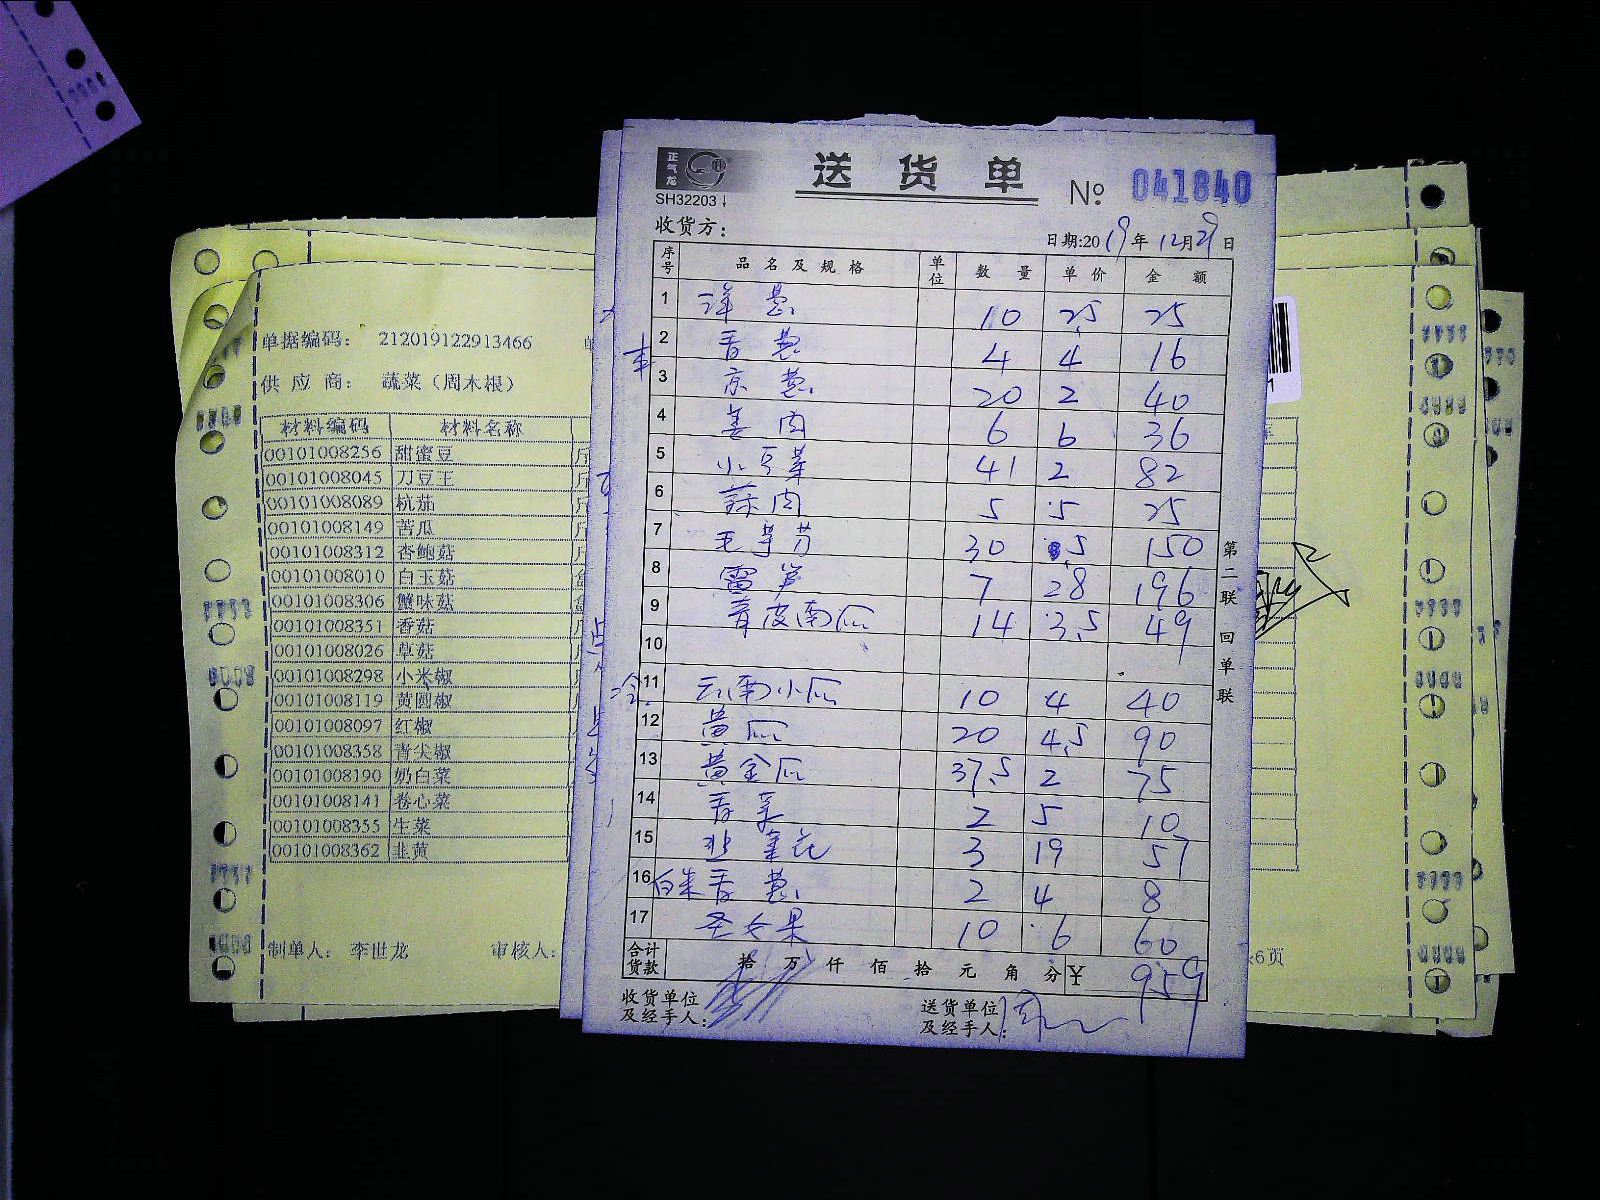 正气龙
SH32203
送货单
№ 041840
收货方：
日期:2019年12月29日
序号 品名及规格 单位 数量 单价 金额
1 洋葱 10 2.5 25
2 香葱 4 4 16
3 京葱 20 2 40
4 姜肉 6 6 36
5 小豆芽 41 2 82
6 蒜肉 5 5 25
7 毛芋艿 30 5 150
8 雷笋 7 28 196
9 青皮南瓜 14 3.5 49
10
11 云南小瓜 10 4 40
12 黄瓜 20 4.5 90
13 黄金瓜 37.5 2 75
14 香菜 2 5 10
15 韭菜花 3 19 57
16 白案香葱 2 4 8
17 圣女果 10 6 60
合计货款 拾万仟佰拾元角分 ¥ 959
收货单位及经手人：
送货单位及经手人：
第二联回单联
单据编码： 212019122913466
供应商： 蔬菜（周木根）
材料编码 材料名称
00101008256 甜蜜豆
00101008045 刀豆王
00101008089 杭茄
00101008149 苦瓜
00101008312 杏鲍菇
00101008010 白玉菇
00101008306 蟹味菇
00101008351 香菇
00101008026 草菇
00101008298 小米椒
00101008119 黄圆椒
00101008097 红椒
00101008358 青尖椒
00101008190 奶白菜
00101008141 卷心菜
00101008355 生菜
00101008362 韭黄
制单人： 李世龙 审核人:
6页